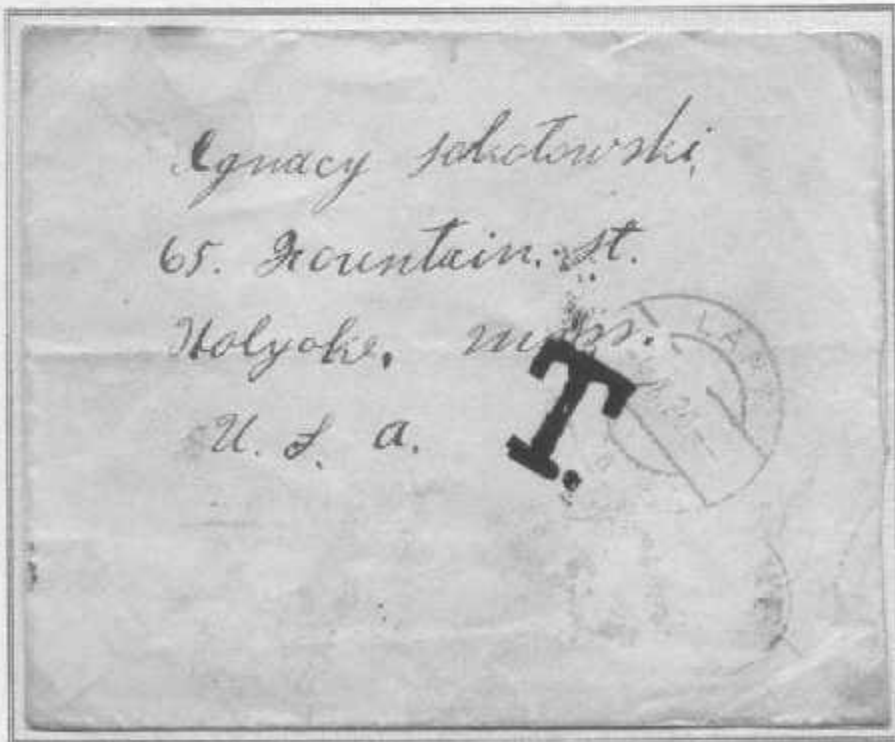 Ignacy Sokołowski,
65. Fountain. St.
Holyoke, Mass.
U. S. A.
T.